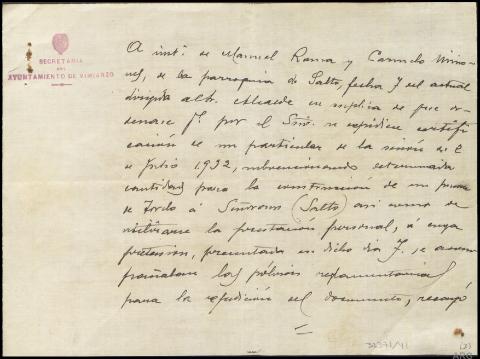 SECRETARÍA
DEL
AYUNTAMIENTO DE VIMIANZO
A inst.ª de Manuel Rama y Carmelo Miño-
nes, de la parroquia de Salto, fecha 7 del actual
dirigida al Sr. Alcalde en súplica de que or-
denase pª. por el Srio. se expidiese certifi-
cación de un particular de la sesión de 2
de Julio 1.932, subvencionando determinada
cantidad para la construcción de un
de Tordo á (Salto) así como de
la prestación personal, á cuya
pretensión, presentada en dicho día 7, se acom-
pañaban las pólizas reglamentarias
para la expedición del documento, recayó
32571/11
(2)